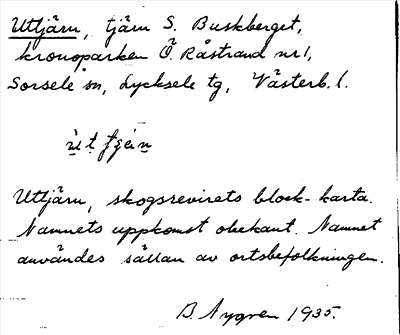 Uttjärn, tjärn S. Buskberget,
kronoparken Ö. Råstrand nr 1,
Sorsele sn, Lycksele tg, Västerb. l.
Uttjärn, skogsrevirets block-karta.
Namnets uppkomst obekant. Namnet
användes sällan av ortsbefolkningen.
B. Nygren 1935.